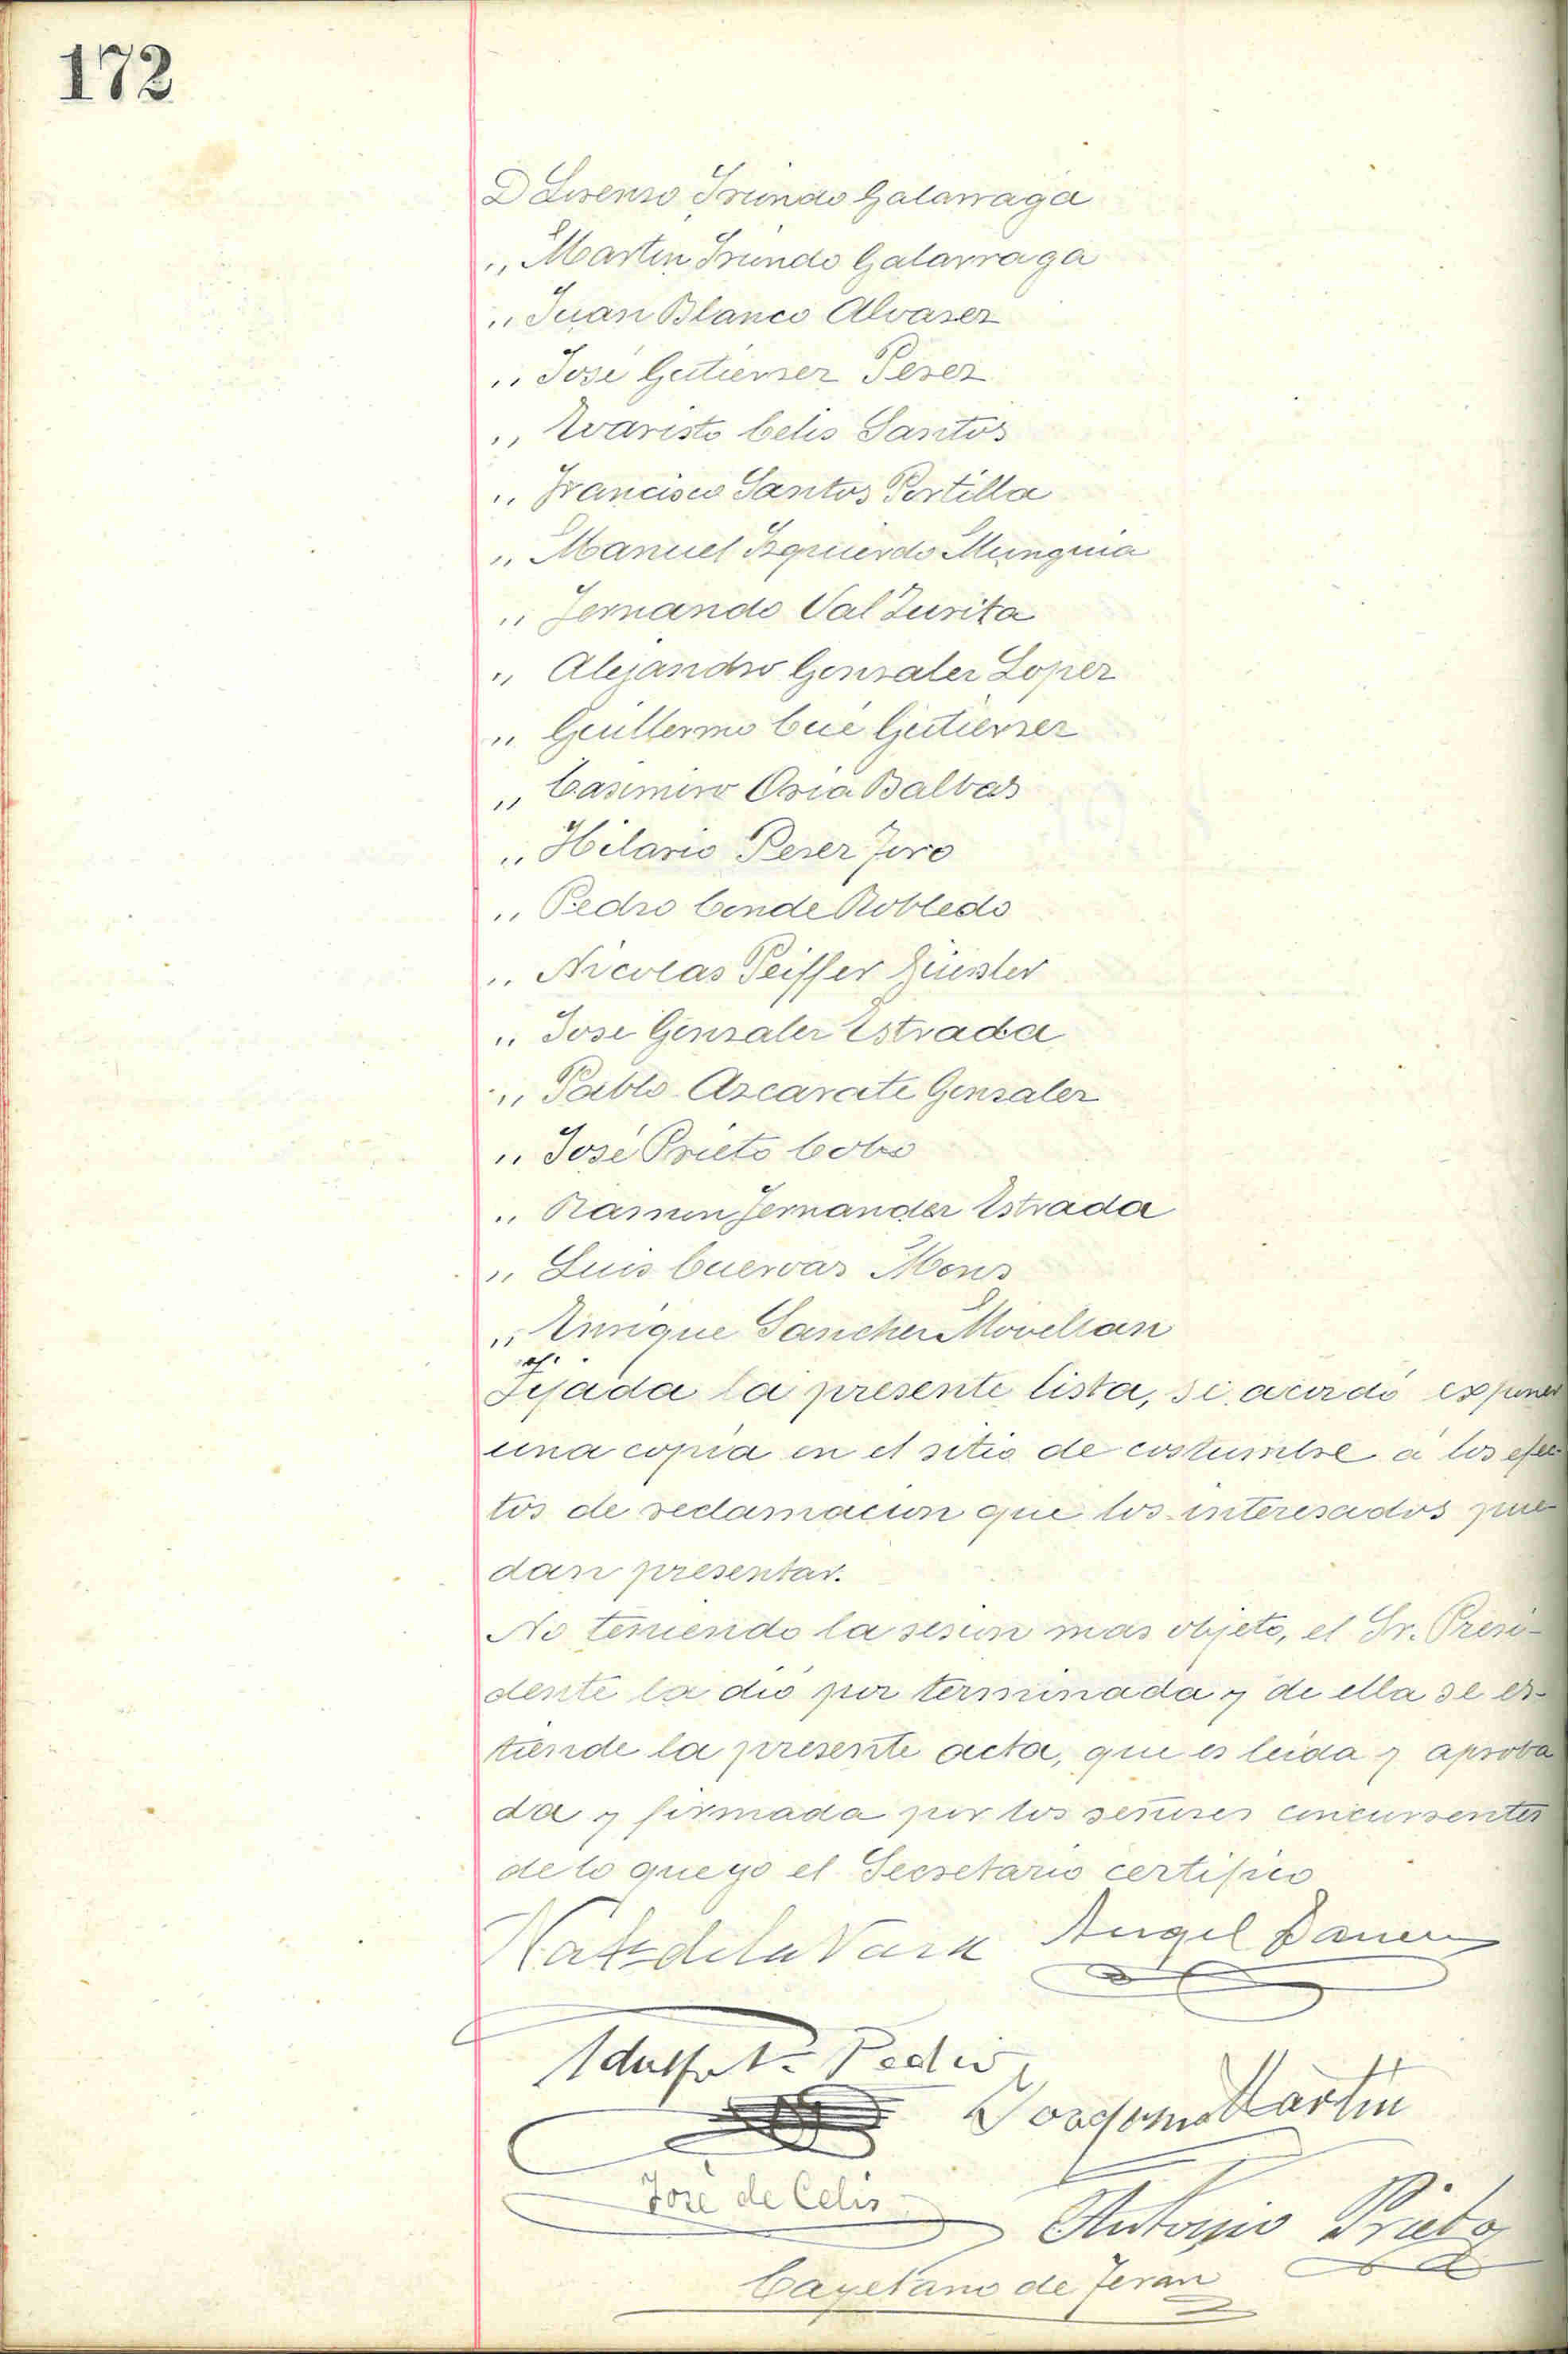 172
D Lorenzo Irundo Galarraga
,, Martin Irundo Galarraga
,, Juan Blanco Alvarez
,, José Gutierrez Perez
,, Evaristo Celis Santos
,, Francisco Santos Portilla
,, Manuel Izquierdo Munguia
,, Fernando Val Zurita
,, Alejandro Gonzalez Lopez
,, Guillermo Cué Gutierrez
,, Casimiro Oria Balbas
,, Hilario Perez Toro
,, Pedro Conde Robledo
,, Nicolas Peiffer
,, Jose Gonzalez Estrada
,, Pablo Azcarate Gonzalez
,, José Prieto Cobo
,, Ramon Fernandez Estrada
,, Luis Cuevas Mons
,, Enrique Sanchez Movellan
Fijada la presente lista, se acordó exponer
una copia en el sitio de costumbre á los efec
tos de reclamacion que los interesados pue
dan presentar.
No teniendo la sesion mas objeto, el Sr. Presi-
dente la dió por terminada y de ella se es-
tiende la presente acta, que es leida y aproba
da y firmada por los señores concurrentes
de lo que yo el Secretario certifico
de la Vara Angel
Pedro
Martin
José de Celis
Antonio Prieto
Cayetano de Teran